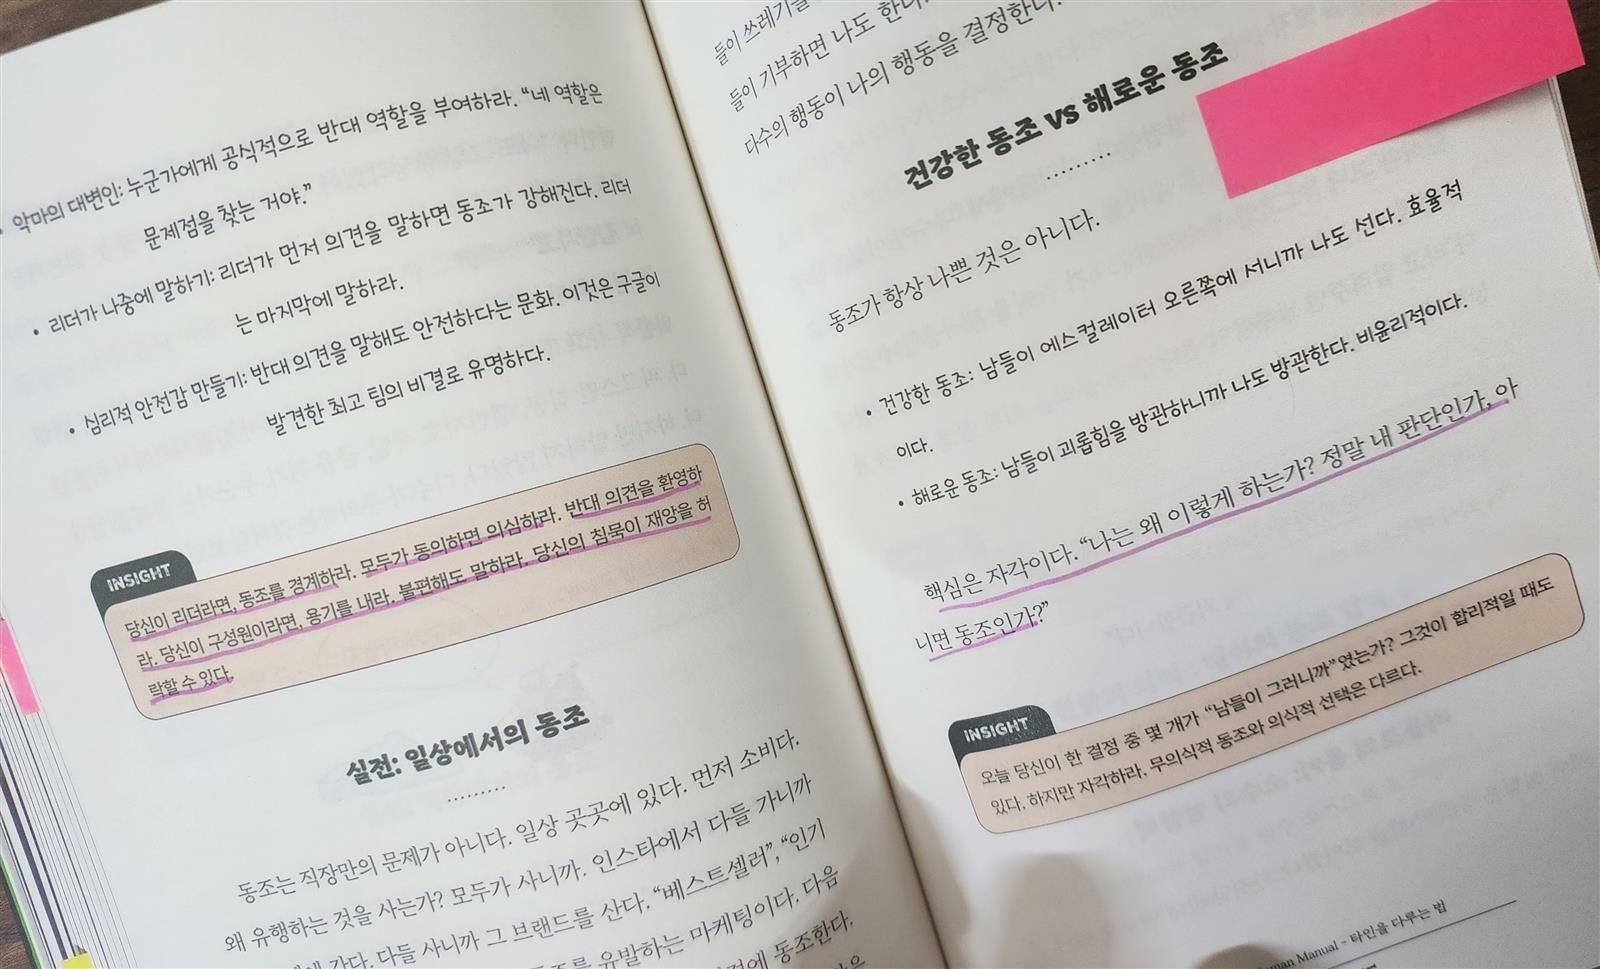 • 악마의 대변인: 누군가에게 공식적으로 반대 역할을 부여하라. “네 역할은
문제점을 찾는 거야.”
• 리더가 나중에 말하기: 리더가 먼저 의견을 말하면 동조가 강해진다. 리더
는 마지막에 말하라.
• 심리적 안전감 만들기: 반대 의견을 말해도 안전하다는 문화. 이것은 구글이
발견한 최고 팀의 비결로 유명하다.
INSIGHT
당신이 리더라면, 동조를 경계하라. 모두가 동의하면 의심하라. 반대 의견을 환영하
라. 당신이 구성원이라면, 용기를 내라. 불편해도 말하라. 당신의 침묵이 재앙을 허
락할 수 있다.
실전: 일상에서의 동조
동조는 직장만의 문제가 아니다. 일상 곳곳에 있다. 먼저 소비다.
왜 유행하는 것을 사는가? 모두가 사니까. 인스타에서 다들 가니까
간다. 다들 사니까 그 브랜드를 산다. “베스트셀러”, “인기
동조를 유발하는 마케팅이다. 다음
동조한다.
들이 쓰레기를
들이 기부하면 나도 한다.
다수의 행동이 나의 행동을 결정한다.
건강한 동조 vs 해로운 동조
동조가 항상 나쁜 것은 아니다.
• 건강한 동조: 남들이 에스컬레이터 오른쪽에 서니까 나도 선다. 효율적
이다.
• 해로운 동조: 남들이 괴롭힘을 방관하니까 나도 방관한다. 비윤리적이다.
핵심은 자각이다. “나는 왜 이렇게 하는가? 정말 내 판단인가, 아
니면 동조인가?”
INSIGHT
오늘 당신이 한 결정 중 몇 개가 “남들이 그러니까”였는가? 그것이 합리적일 때도
있다. 하지만 자각하라. 무의식적 동조와 의식적 선택은 다르다.
Manual - 타인을 다루는 법